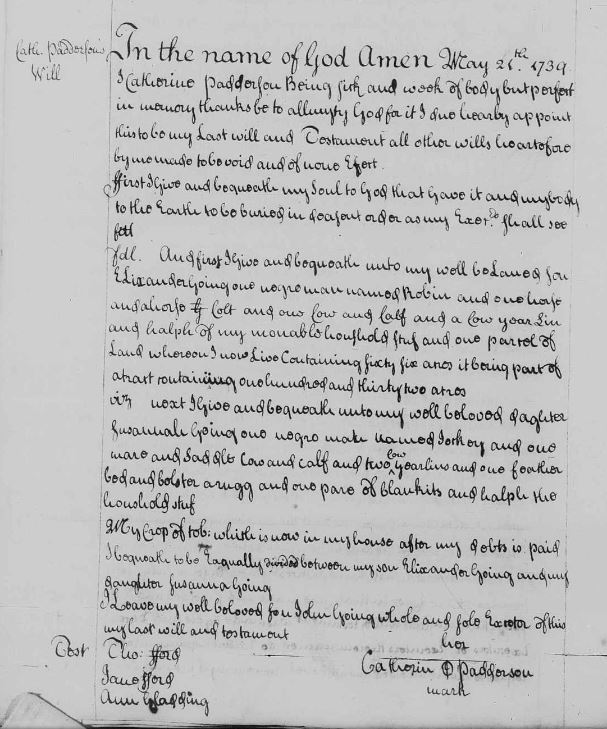 Cath. Padderson's
Will
In the name of God Amen May 21th. 1739.
I Catherine Padderson Being sick and week of body but perfect
in memory thanks be to allmyty God for it I due hearby appoint
this to be my Last will and Testament all other wills heartofore
by me made to be void and of none Efect.
ffirst I Give and bequeath my Soul to God that Gave it and my body
to the Earth to be buried in deasent order as my Exers. shall see
fitt
And first I Give and bequeath unto my well be Laved son
Elixander Going one negro man named Robin and one horse
and a horse Colt and one Cow and Calf and a Cow year Lin
and halph of my movable houshold stuf and one parcel of
Land whereon I now Live Containing sixty six acres it being part of
a tract containing one hundred and thirty two acres
next I Give and bequeath unto my well beloved daghter
Susannah Going one negro male named Jockey and one
mare and Saddle Cow and calf and two cow yearlins and one feather
bed and bolster a rugg and one pare of blankits and halph the
houshold stuf
My Crop of tob: which is now in my house after my debts is paid
I bequeath to be Eaqually divided between my son Elixander Going and my
daughter Susanna Going
I Leave my well beloved son John Going whole and sole Exector of this
my last will and testament
her
Test Tho: fford
Catherin Padderson
Jane fford
mark
Ann Gladding